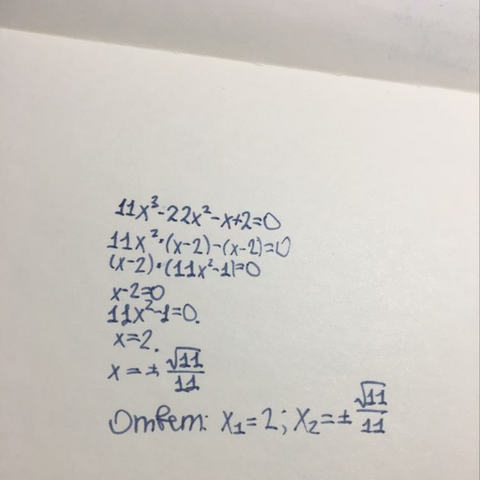 11x³-22x²-x+2=0
11x²·(x-2)-(x-2)=0
(x-2)·(11x²-1)=0
x-2=0
11x²-1=0.
x=2.
x=±√11/11
Ответ: x₁=2; x₂=±√11/11